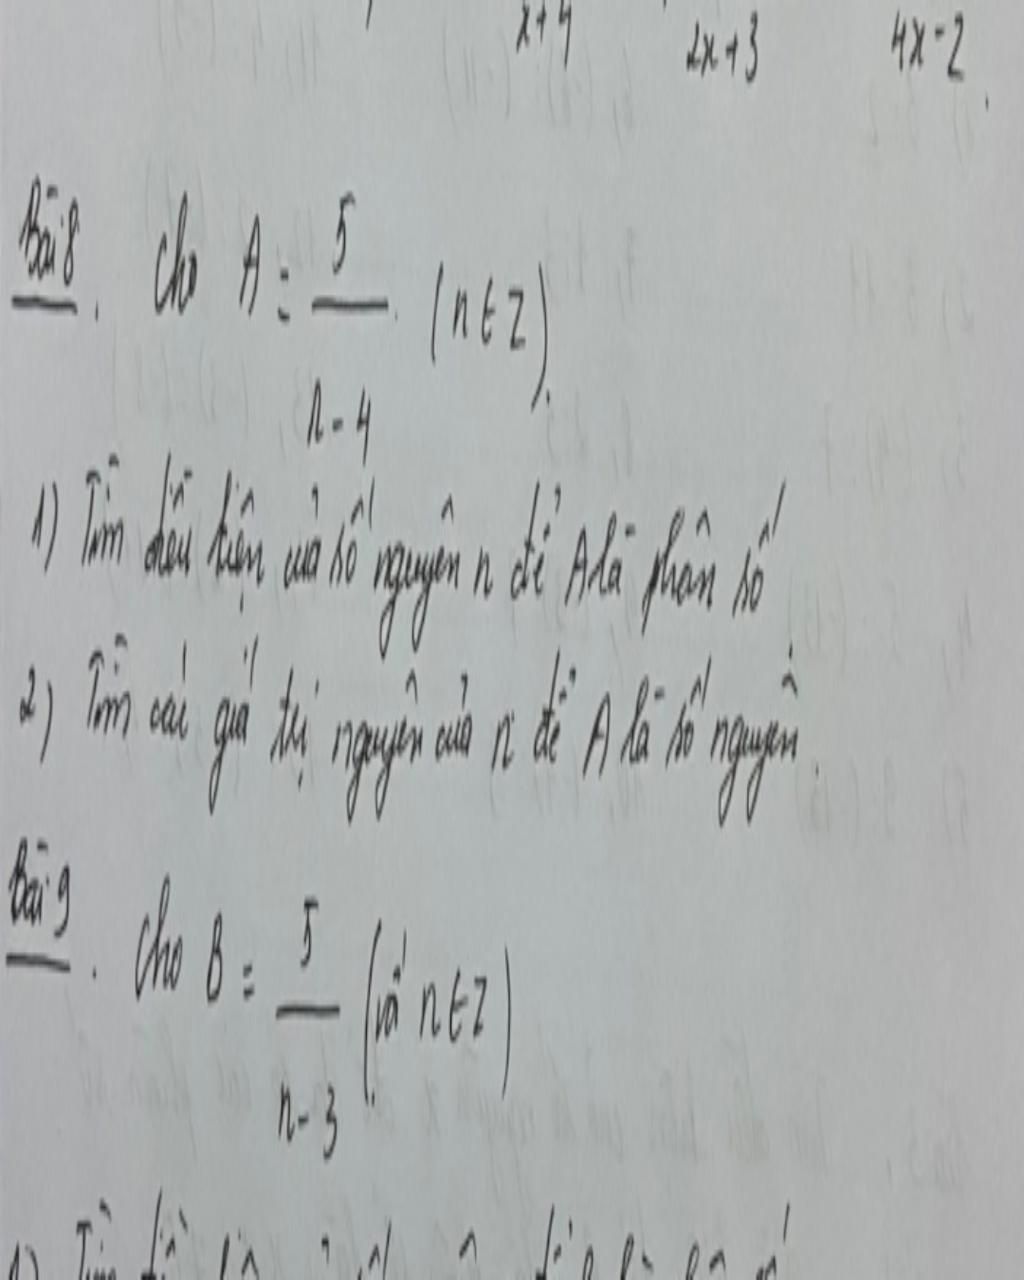 x+4 2x+3 4x-2.
Bài 8. Cho A = 5/n-4 (n∈Z).
1) Tìm điều kiện của số nguyên n để A là phân số
2) Tìm các giá trị nguyên của n để A là số nguyên.
Bài 9. Cho B = 5/n-3 (với n∈Z)